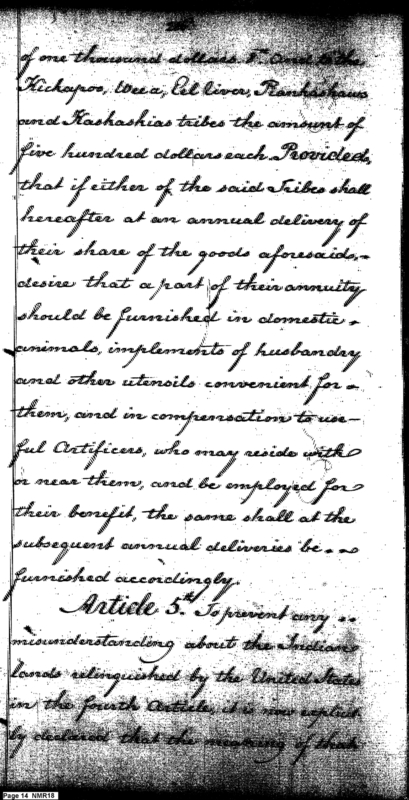 of one thousand dollars. 5th. And to the
Kickapoo, Weea, Eel River, Piankashaws
and Kaskaskias tribes the amount of
five hundred dollars each. Provided,
that if either of the said Tribes shall
hereafter at an annual delivery of
their share of the goods aforesaid,
desire that a part of their annuity
should be furnished in domestic
animals, implements of husbandry
and other utensils convenient for
them, and in compensation to use-
ful Artificers, who may reside with
or near them, and be employed for
their benefit, the same shall at the
subsequent annual deliveries be
furnished accordingly.
Article 5th. To prevent any
misunderstanding about the Indian
lands relinquished by the United States
in the fourth Article, it is now explicit
ly declared that the meaning of that
Page 14 NMR18